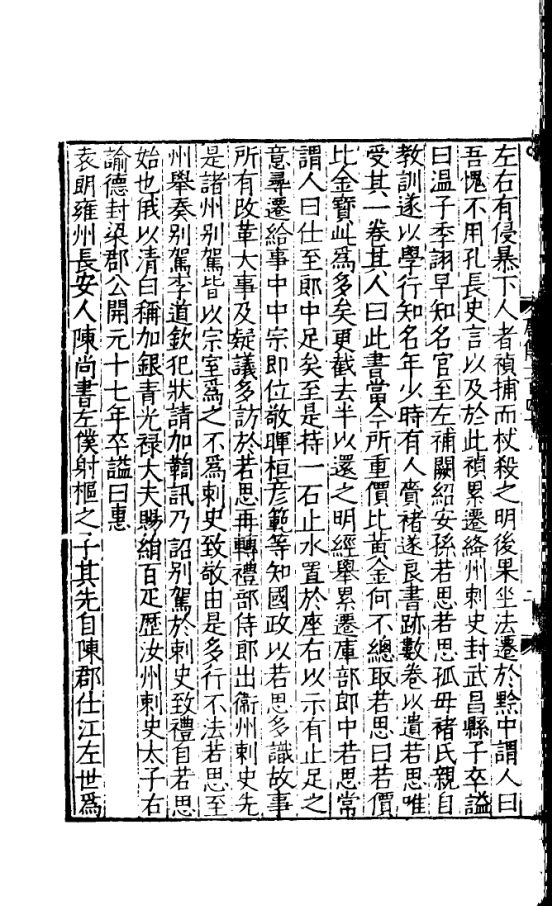 左右有侵暴下人者禎捕而杖殺之明後果坐法遷於黔中謂人曰
吾愧不用孔長史言以及於此禎累遷絳州刺史封武昌縣子卒謚
曰温子季詡早知名官至左補闕紹安孫若思若思孤母褚氏親自
教訓遂以學行知名年少時有人賫褚遂良書跡數卷以遺若思唯
受其一卷其人曰此書當今所重價比黄金何不總取若思曰若價
比金寶此爲多矣更截去半以還之明經舉累遷庫部郎中若思常
謂人曰仕至郎中足矣至是持一石止水置於座右以示有止足之
意尋遷給事中中宗即位敬暉桓彦範等知國政以若思多識故事
所有改革大事及疑議多訪於若思再轉禮部侍郎出衛州刺史先
是諸州别駕皆以宗室爲之不爲刺史致敬由是多行不法若思至
州舉奏别駕李道欽犯狀請加鞫訊乃詔别駕於刺史致禮自若思
始也俄以清白稱加銀青光禄大夫賜絹百疋歷汝州刺史太子右
諭德封梁郡公開元十七年卒謚曰惠
袁朗雍州長安人陳尚書左僕射樞之子其先自陳郡仕江左世爲